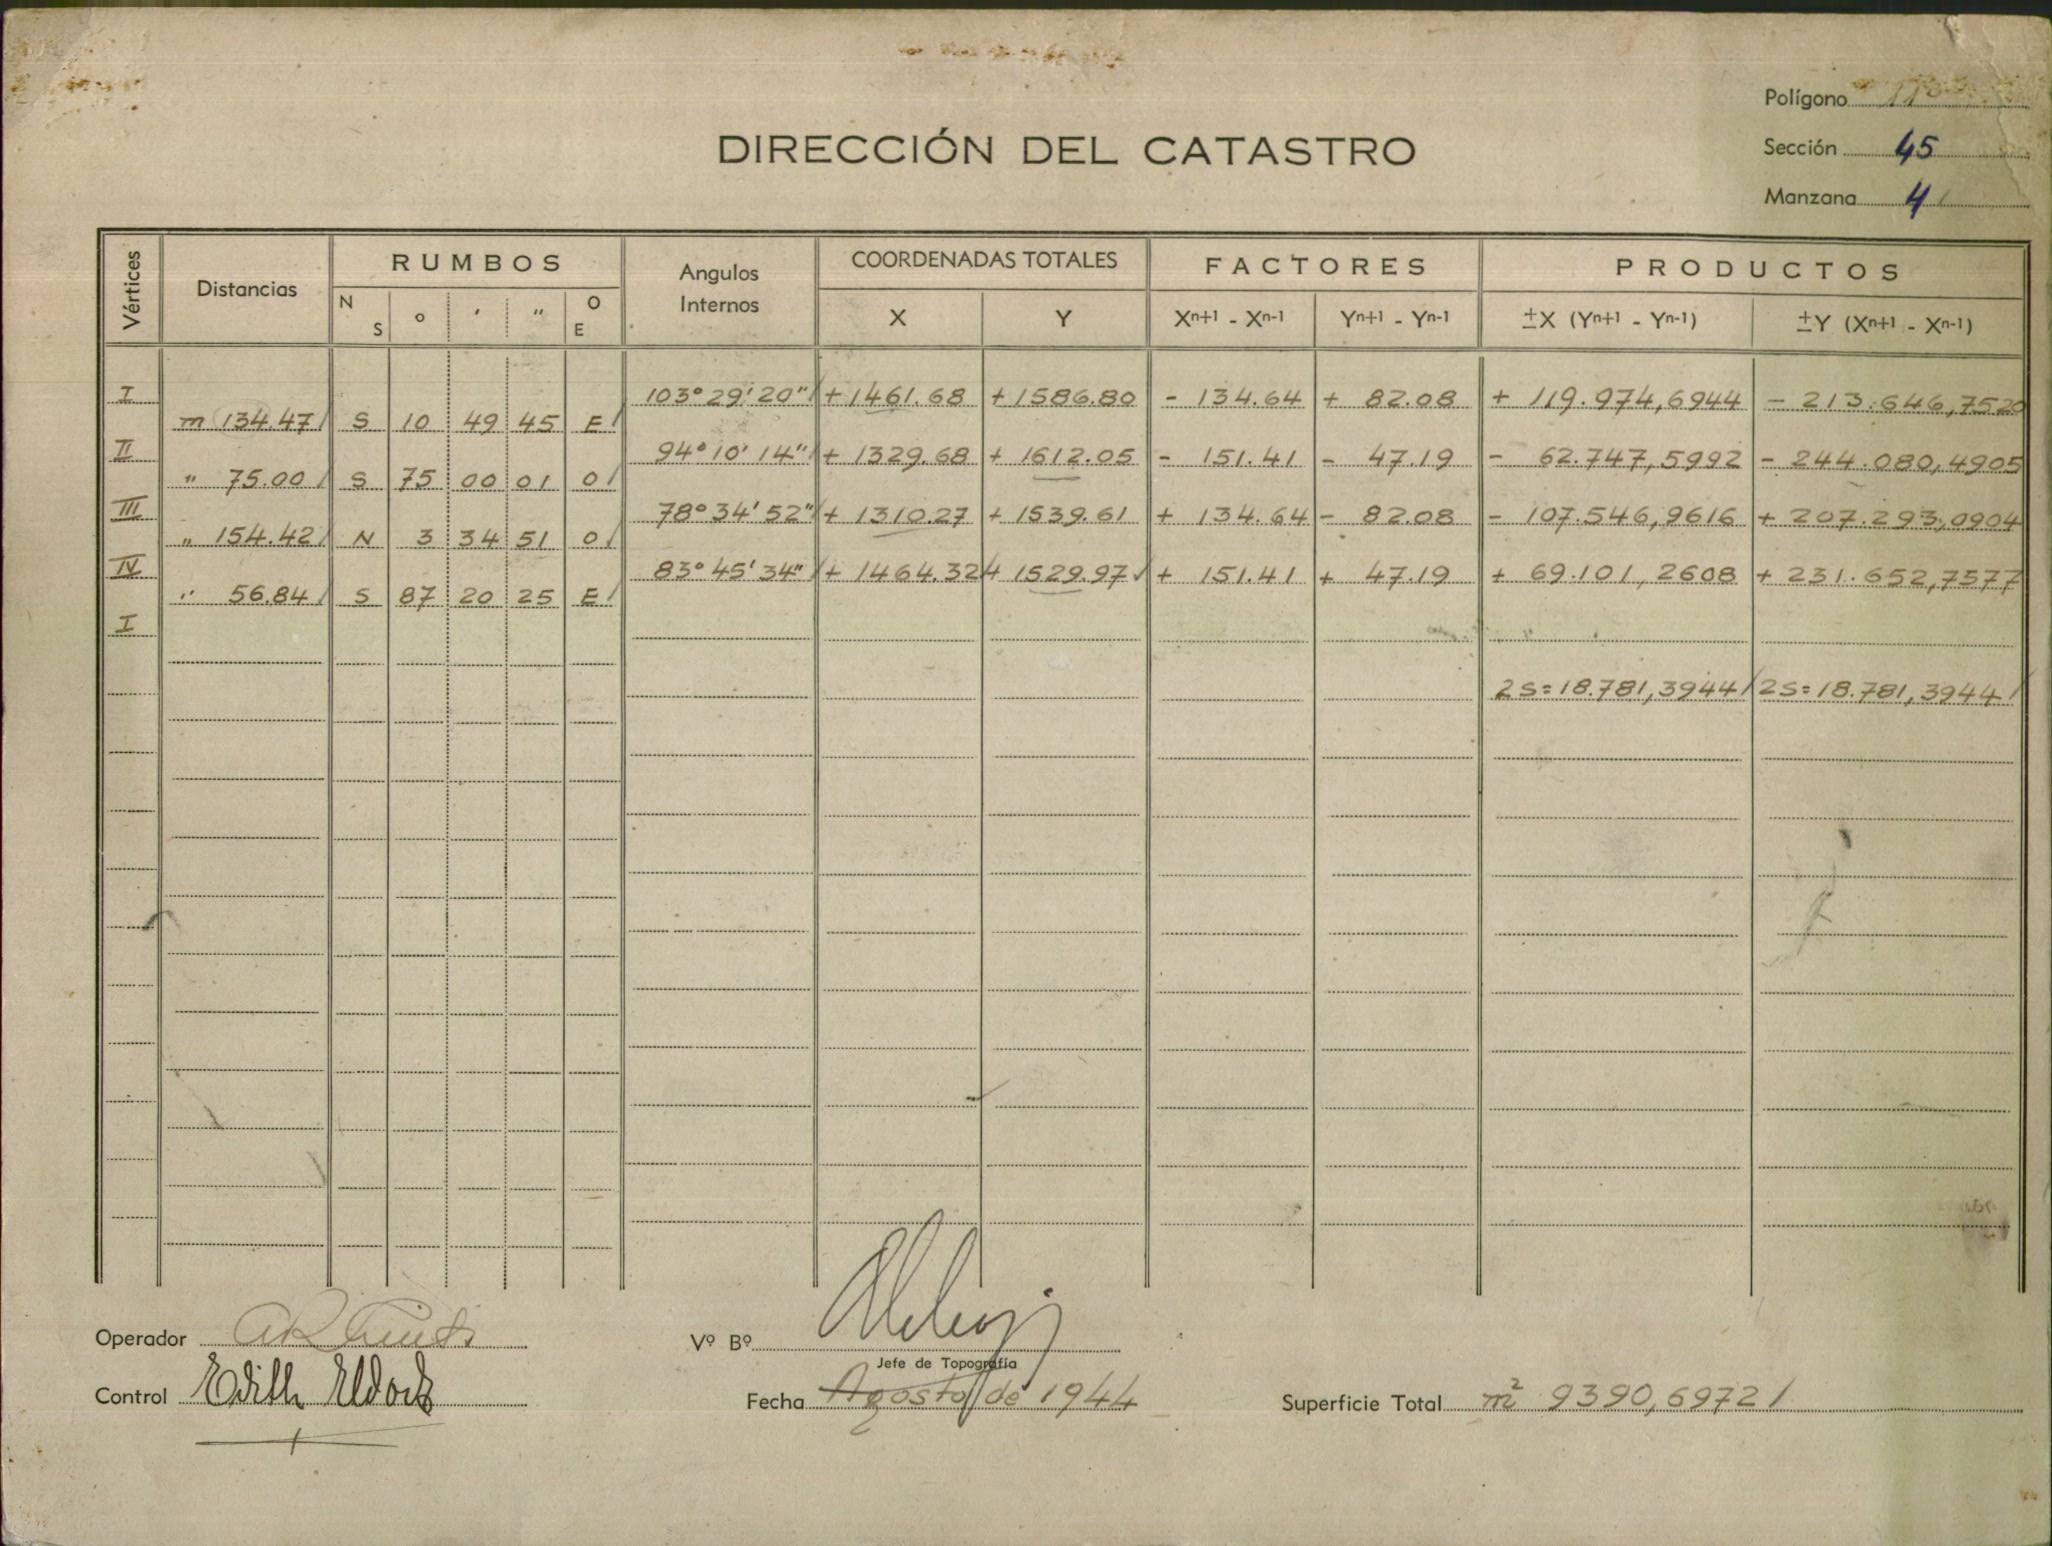 Polígono
DIRECCIÓN DEL CATASTRO
Sección 45
Manzana 4
Vértices Distancias RUMBOS Angulos Internos COORDENADAS TOTALES FACTORES PRODUCTOS
N S ° ' " O E X Y Xn+1 - Xn-1 Yn+1 - Yn-1 ±X (Yn+1 - Yn-1) ±Y (Xn+1 - Xn-1)
I 103° 29' 20" + 1461.68 + 1586.80 - 134.64 + 82.08 + 119.974,6944 - 213.646,7520
m 134.47 S 10 49 45 E
II 94° 10' 14" + 1329.68 + 1612.05 - 151.41 - 47.19 - 62.747,5992 - 244.080,4905
" 75.00 S 75 00 01 O
III 78° 34' 52" + 1310.27 + 1539.61 + 134.64 - 82.08 - 107.546,9616 + 207.293,0904
" 154.42 N 3 34 51 O
IV 83° 45' 34" + 1464.32 + 1529.97 + 151.41 + 47.19 + 69.101,2608 + 231.652,7577
" 56.84 S 87 20 25 E
I
2S=18.781,3944 2S=18.781,3944
Operador
Vº Bº
Jefe de Topografía
Control Edith
Fecha Agosto de 1944
Superficie Total m² 9390,6972